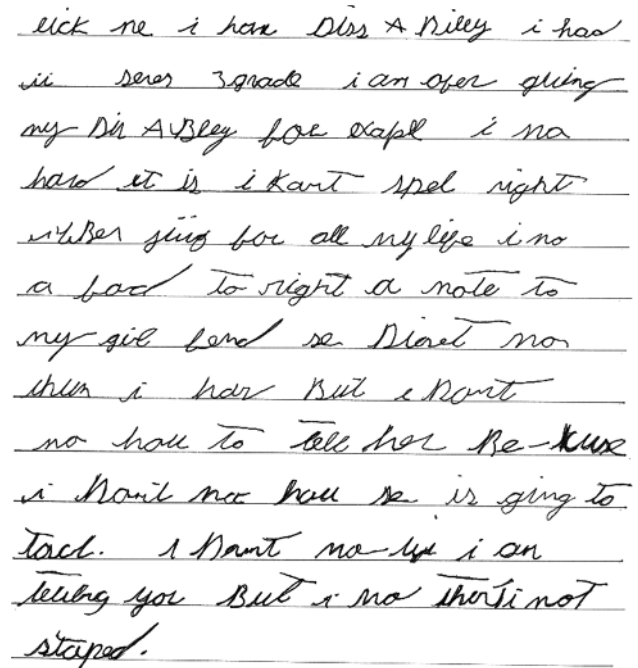 lick me i have Diss A Biley i had
it sens 3grade i am ofer giing
my Dis A Bley foe exaple i no
hard it is i kant spel right
i'v Ben jiing for all my life i no
a fad to right a note to
my gil fend se Dioset no
then i hav But i Dont
no hau to tell her Be-kuse
i Don't noe hau se is ging to
tack. I Dount no-wi i am
teling you But i no thert i not
staped.